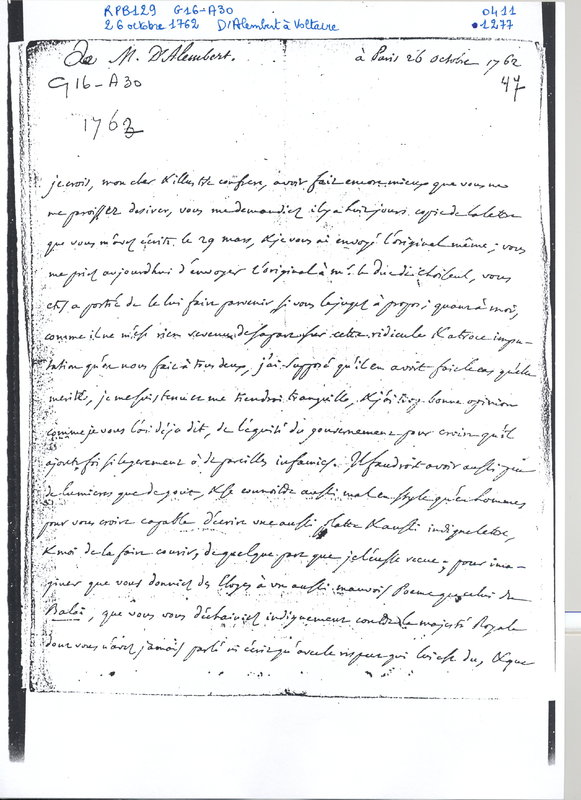 RPB129 G16-A30 0411
26 octobre 1762 D'Alembert à Voltaire 01277
De M. D'Alembert. à Paris 26 octobre 1762
G16-A30 47
1762
je crois, mon cher & illustre confrere, avoir fait encore mieux que vous ne
me paroissez desirer, vous me demandiez il y a huit jours copie de la lettre
que vous m'avez écrite le 29 mars, & je vous ai envoyé l'original même; vous
me priez aujourdhui d'envoyer l'original à mr. le duc de Choiseul, vous
etes a portée de le lui faire parvenir si vous le jugez à propos; quant à moi,
comme il ne m'est rien revenu de sa part sur cette ridicule & atroce impu-
tation qu'on nous fait à tous deux, j'ai supposé qu'il en avoit fait le cas qu'elle
merite, je me suis tenu et me tiendrai tranquille, & j'ai trop bonne opinion
comme je vous l'ai déja dit, de l'équité du gouvernement pour croire qu'il
ajoute foi si legerement à de pareilles infamies. Il faudroit avoir aussi peu
de lumieres que de gout, & se connoitre aussi mal en style qu'en hommes
pour vous croire capable d'écrire une aussi plate & aussi indigne lettre,
& moi de la faire courir, de quelque part que je l'eusse recue; pour ima-
giner que vous donniez des eloges à un aussi mauvais Poeme que celui de
Balai, que vous vous déchainiez indignement contre la majesté Royale
dont vous n'avez jamais parlé ni écrit qu'avec le respect qui lui est du, & que